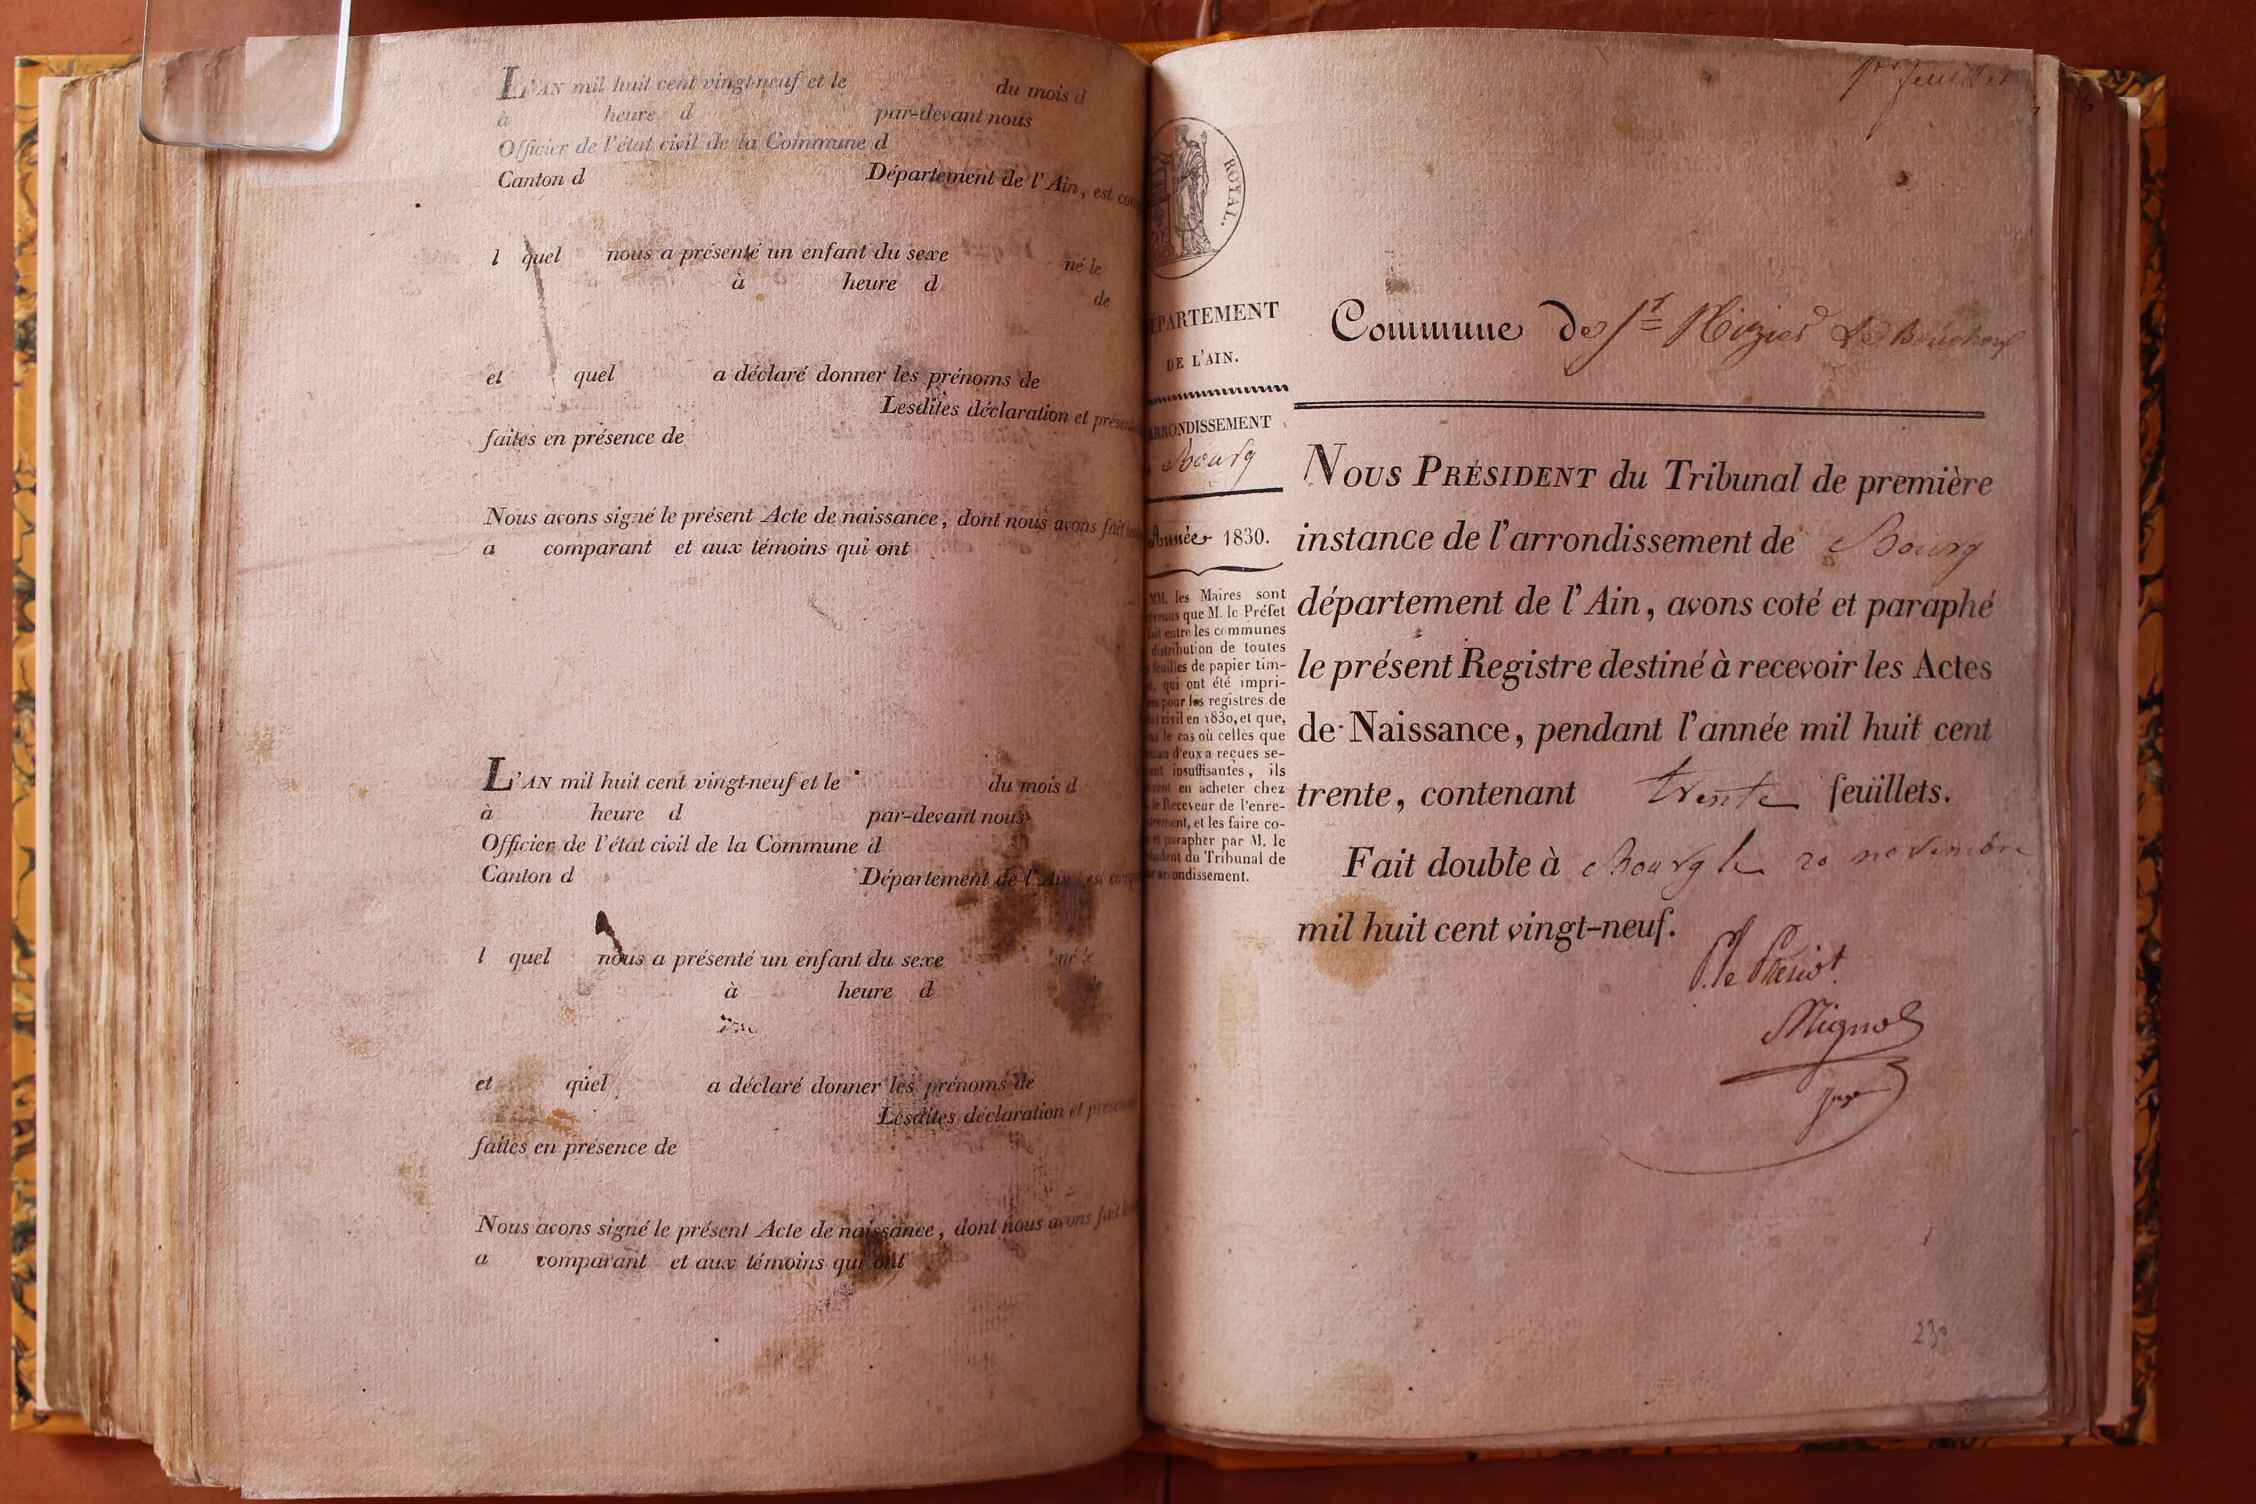 L'AN mil huit cent vingt-neuf et le du mois d
à heure d par-devant nous
Officier de l'état civil de la Commune d
Canton d Département de l'Ain, est
l quel nous a présenté un enfant du sexe né le
à heure d
de
et quel a déclaré donner les prénoms de
Lesdites déclaration et
faites en présence de
Nous avons signé le présent Acte de naissance, dont nous avons fait
a comparant et aux témoins qui ont
L'AN mil huit cent vingt-neuf et le du mois d
à heure d par-devant nous
Officier de l'état civil de la Commune d
Canton d Département de l'Ain est
l quel nous a présenté un enfant du sexe né
à heure d
et quel a déclaré donner les prénoms de
Lesdites déclaration et
faites en présence de
Nous avons signé le présent Acte de naissance, dont nous avons fait
a comparant et aux témoins qui ont
ROYAL.
DÉPARTEMENT
DE L'AIN.
ARRONDISSEMENT
Bourg
Année 1830.
MM. les Maires sont
que M. le Préfet
fait entre les communes
distribution de toutes
feuilles de papier tim-
qui ont été impri-
pour les registres de
civil en 1830, et que,
le cas où celles que
d'eux a reçues se-
insuffisantes, ils
en acheter chez
le Receveur de l'enre-
et les faire co-
et parapher par M. le
du Tribunal de
arrondissement.
1er feuillet
Commune de St Nizier Le Bouchoux
NOUS PRÉSIDENT du Tribunal de première
instance de l'arrondissement de Bourg
département de l'Ain, avons coté et paraphé
le présent Registre destiné à recevoir les Actes
de Naissance, pendant l'année mil huit cent
trente, contenant trente feuillets.
Fait double à Bourg le 20 novembre
mil huit cent vingt-neuf.
Mignot
juge
230